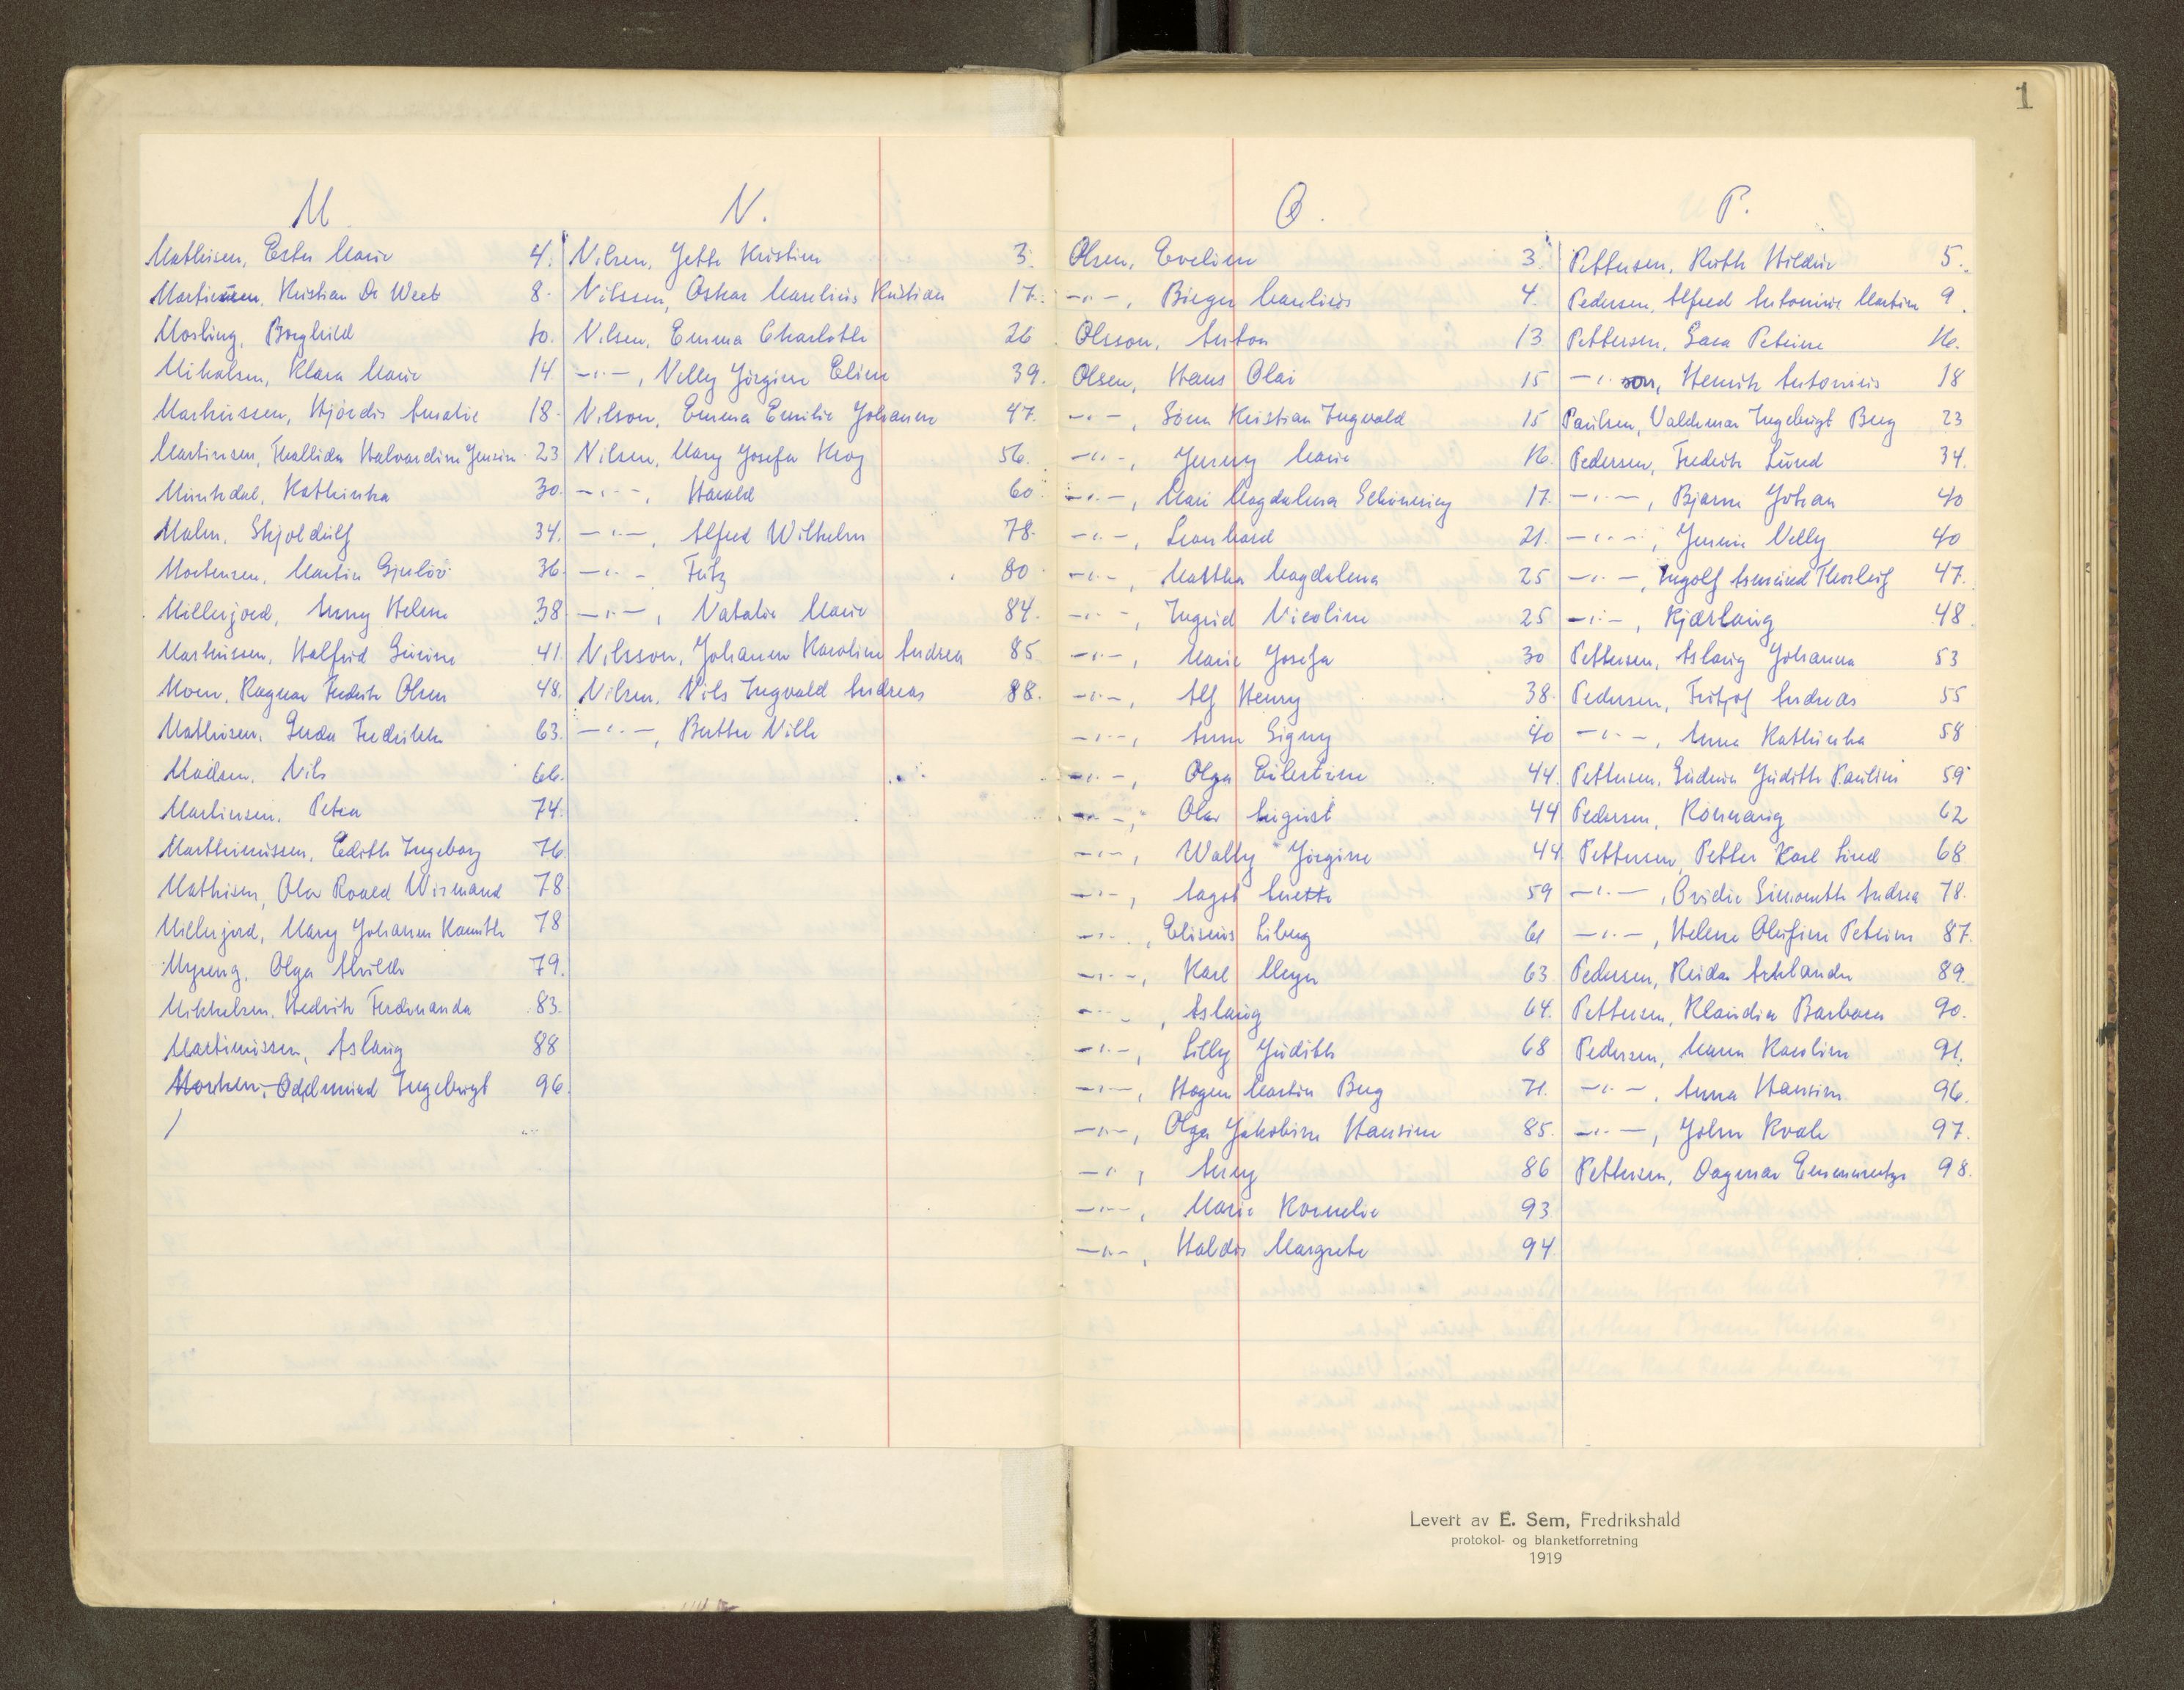 1
M
Mathisen, Ester Marie 4.
Kristian De Weet 8.
Mosling, Borghild 10.
Mikalsen, Klara Marie 14
Markussen, Hjørdis Amalie 18
Martinsen, Halvardine Jensine 23
Munkdal, Kathinka 30.
Malm, Skjoldulf 34.
Mortensen, Martin Gjerlöv 36
Millerjord, Anny Helene 38
Markussen, Halfrid Gurine 41
Moen, Ragnar Fredrik Olsen 48.
Mathisen, Gerda Fredrikke 63.
Madsen, Nils 66.
Martinsen, Petra 74.
Marthinussen, Edith Ingeborg 76
Mathisen, Olav Roald Wismand 78
Millerjord, Mary Johanne 78
Myreng, Olga Alvilde 79.
Mikkelsen, Hedvik Ferdinanda 83.
Martinussen, Aslaug 88
Morken, Oddmund Ingebrigt 96.
N.
Nilsen, Jette Kristine 3.
Nilssen, Oskar Marelius Kristian 17.
Nilsen, Emma Charlotte 26
-"-, Nelly Jörgine Eline 39.
Nilson, Emma Emilie Johanne 47.
Nilsen, Mary Josefa Krog 56.
-"-, Harald 60
-"-, Alfred Wilhelm 78.
-"- Fritz 80
-"-, Natalie Marie 84.
Nilsson, Johanne Karoline Andrea 85
Nilsen, Nils Ingvald Andreas 88.
-"-, Berthe Nille
O.
Olsen, Eveline 3.
-"-, Birger Marelius 4.
Olsson, Anton 13
Olsen, Hans Olai 15
-"-, Sören Kristian Ingvald 15
-"-, Jenny Marie 16.
-"-, Mari Magdalena Schönning 17.
-"-, Leonhard 21.
-"-, Martha Magdalena 25
-"-, Ingrid Nicoline 25
-"-, Marie Josefa 30
-"-, Alf Henry 38.
-"-, Anne Signy 40
-"-, Olga Eilertine 44.
-"-, Olav August 44
-"-, Wally Jörgine 44
-"-, Aagot Anette 59
-"-, Eliseus Liberg 61
-"-, Karl Meyer 63
-"-, Aslaug 64.
-"-, Lilly Judith 68
-"-, Hagen Martin Berg 71.
-"-, Olga Jakobine Hansine 85.
-"-, Anny 86
-"-, Marie Kornelie 93
-"-, Haldis Margrete 94
P.
Pettersen, Ruth Hildur 5.
Pedersen, Alfred Antonius Martin 9.
Pettersen, Sara Petrine 16.
-"- son, Henrik Antonius 18
Paulsen, Valdemar Ingebrigt Berg 23
Pedersen, Fredrik Lund 34.
-"-, Bjarne Johan 40
-"-, Jennie Nelly 40
-"-, Ingolf Asmund Thorleif 47.
-"-, Kjærlaug 48.
Pettersen, Aslaug Johanna 53
Pedersen, Fritjof Andreas 55
-"-, Anna Kathinka 58
Pettersen, Gudrun Judith Pauline 59
Pedersen, Rönnaug 62
Pettersen, Petter Karl Lund 68
-"-, Ovidie Simonette Andrea 78.
-"-, Helene Olufine Petrine 87.
Pedersen, Reidar 89.
Pettersen, Klaudia Barbara 90.
Pedersen, Maren Karoline 91.
-"-, Anna Hansine 96.
-"-, John Kvale 97.
Pettersen, Dagmar 98.
Levert av E. Sem, Fredrikshald
protokol- og blanketforretning
1919